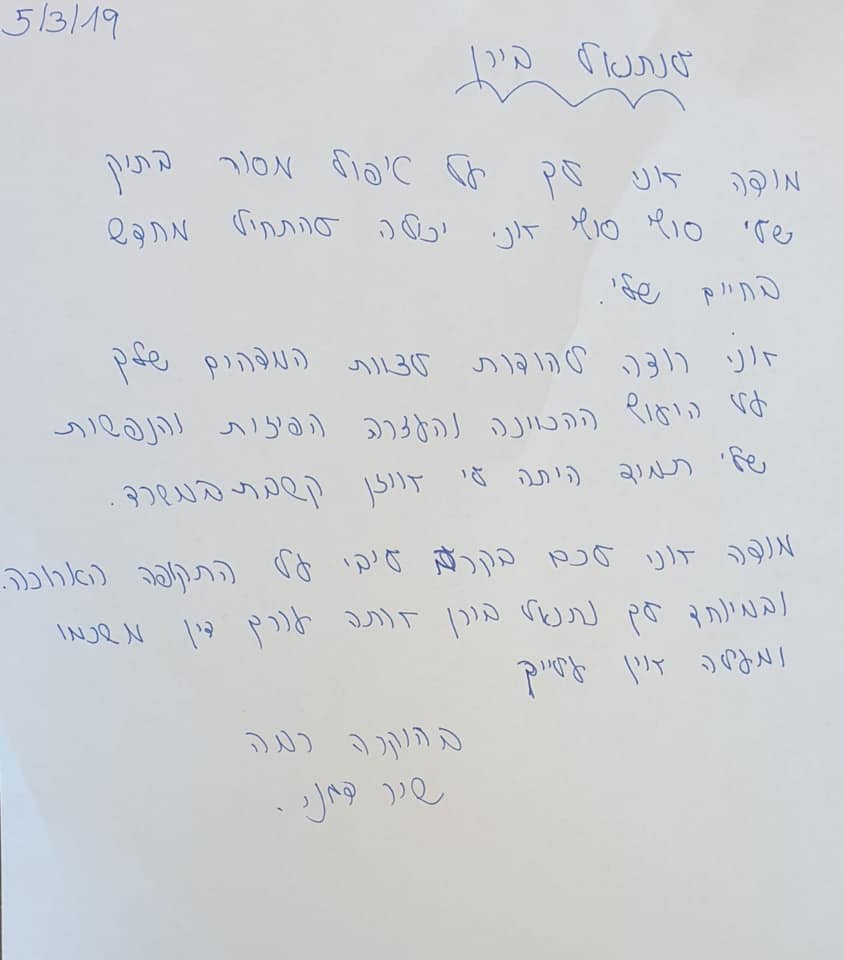 5/3/19
לנתנאל בירן
מודה אני לך על טיפול מסור בתיק
שלי סוף סוף אני יכולה להתחיל מחדש
בחיים שלי.
אני רוצה להודות לצוות המדהים שלך
על היעוץ ההכוונה והעזרה הפיזית והנפשות
שלי תמיד היתה לי אוזן קשבת במשרד.
מודה אני לכם בקרב ליבי על התקופה הארוכה.
ובמיוחד לך נתנאל בירן אתה עורך דין משכמו
ומעלה אין עלייך
בהוקרה רבה
שיר